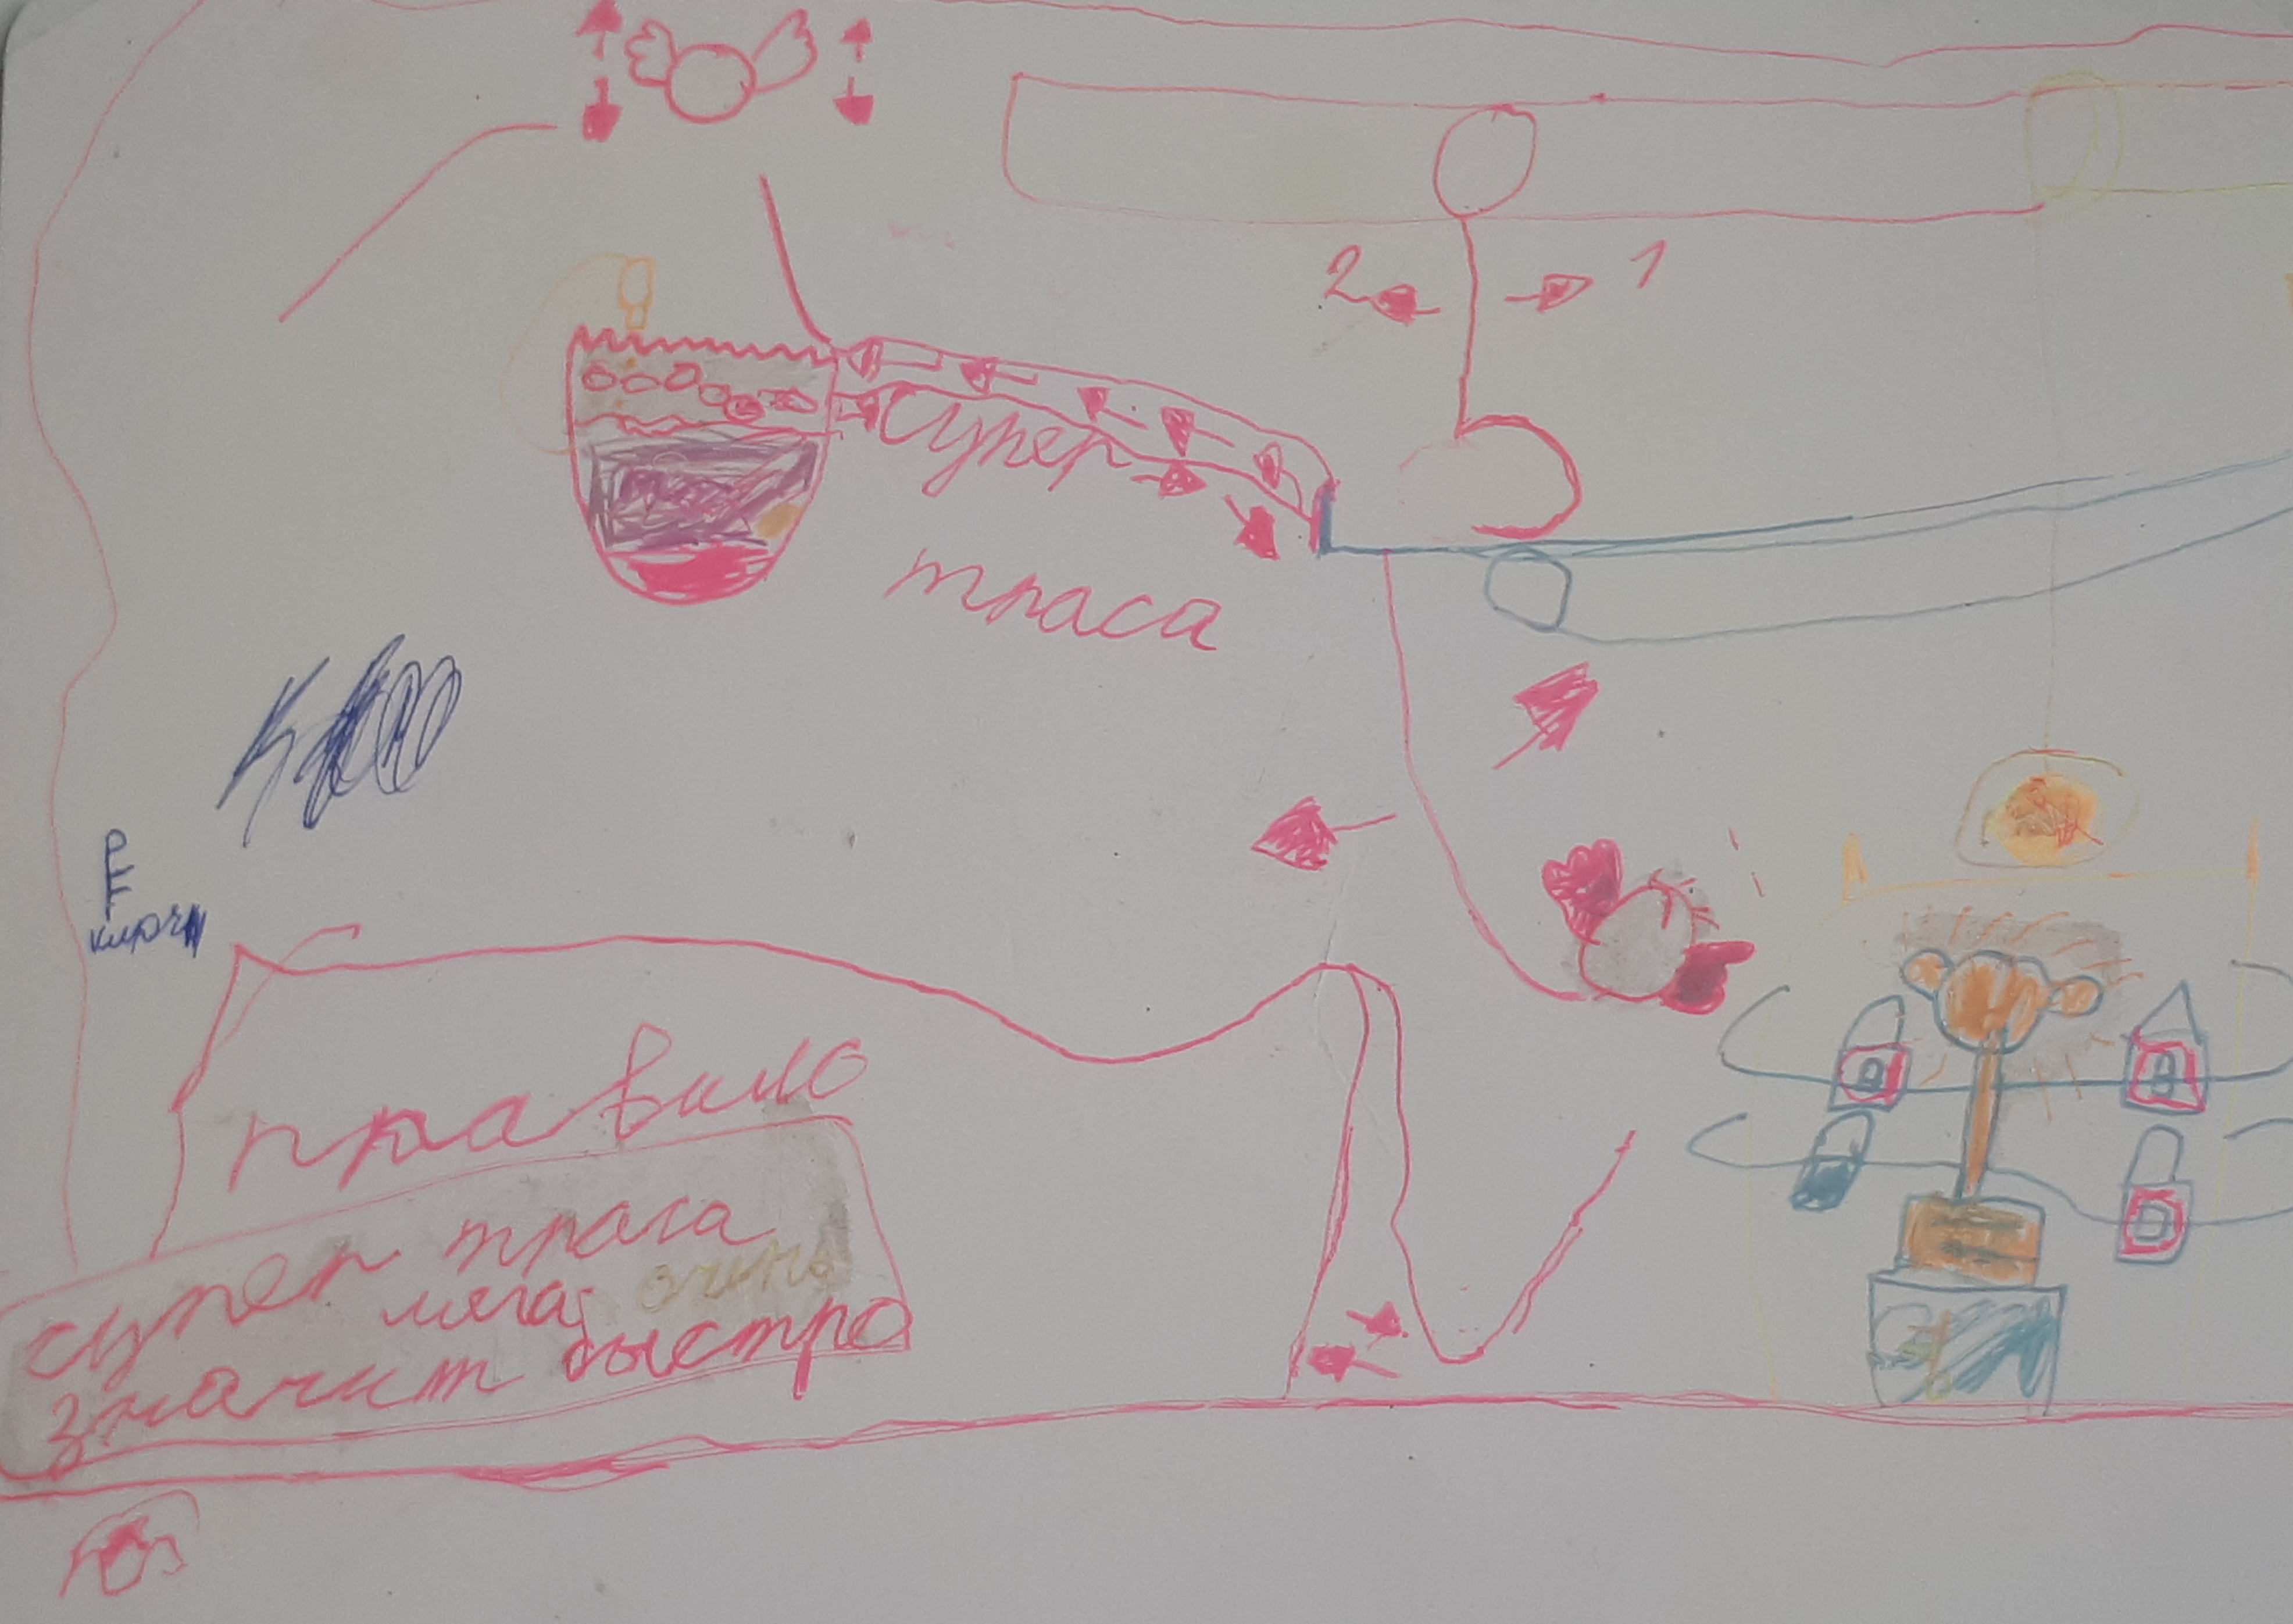 2 1
супер
траса
ключ
правило
супер траса
мега очень
значит быстро